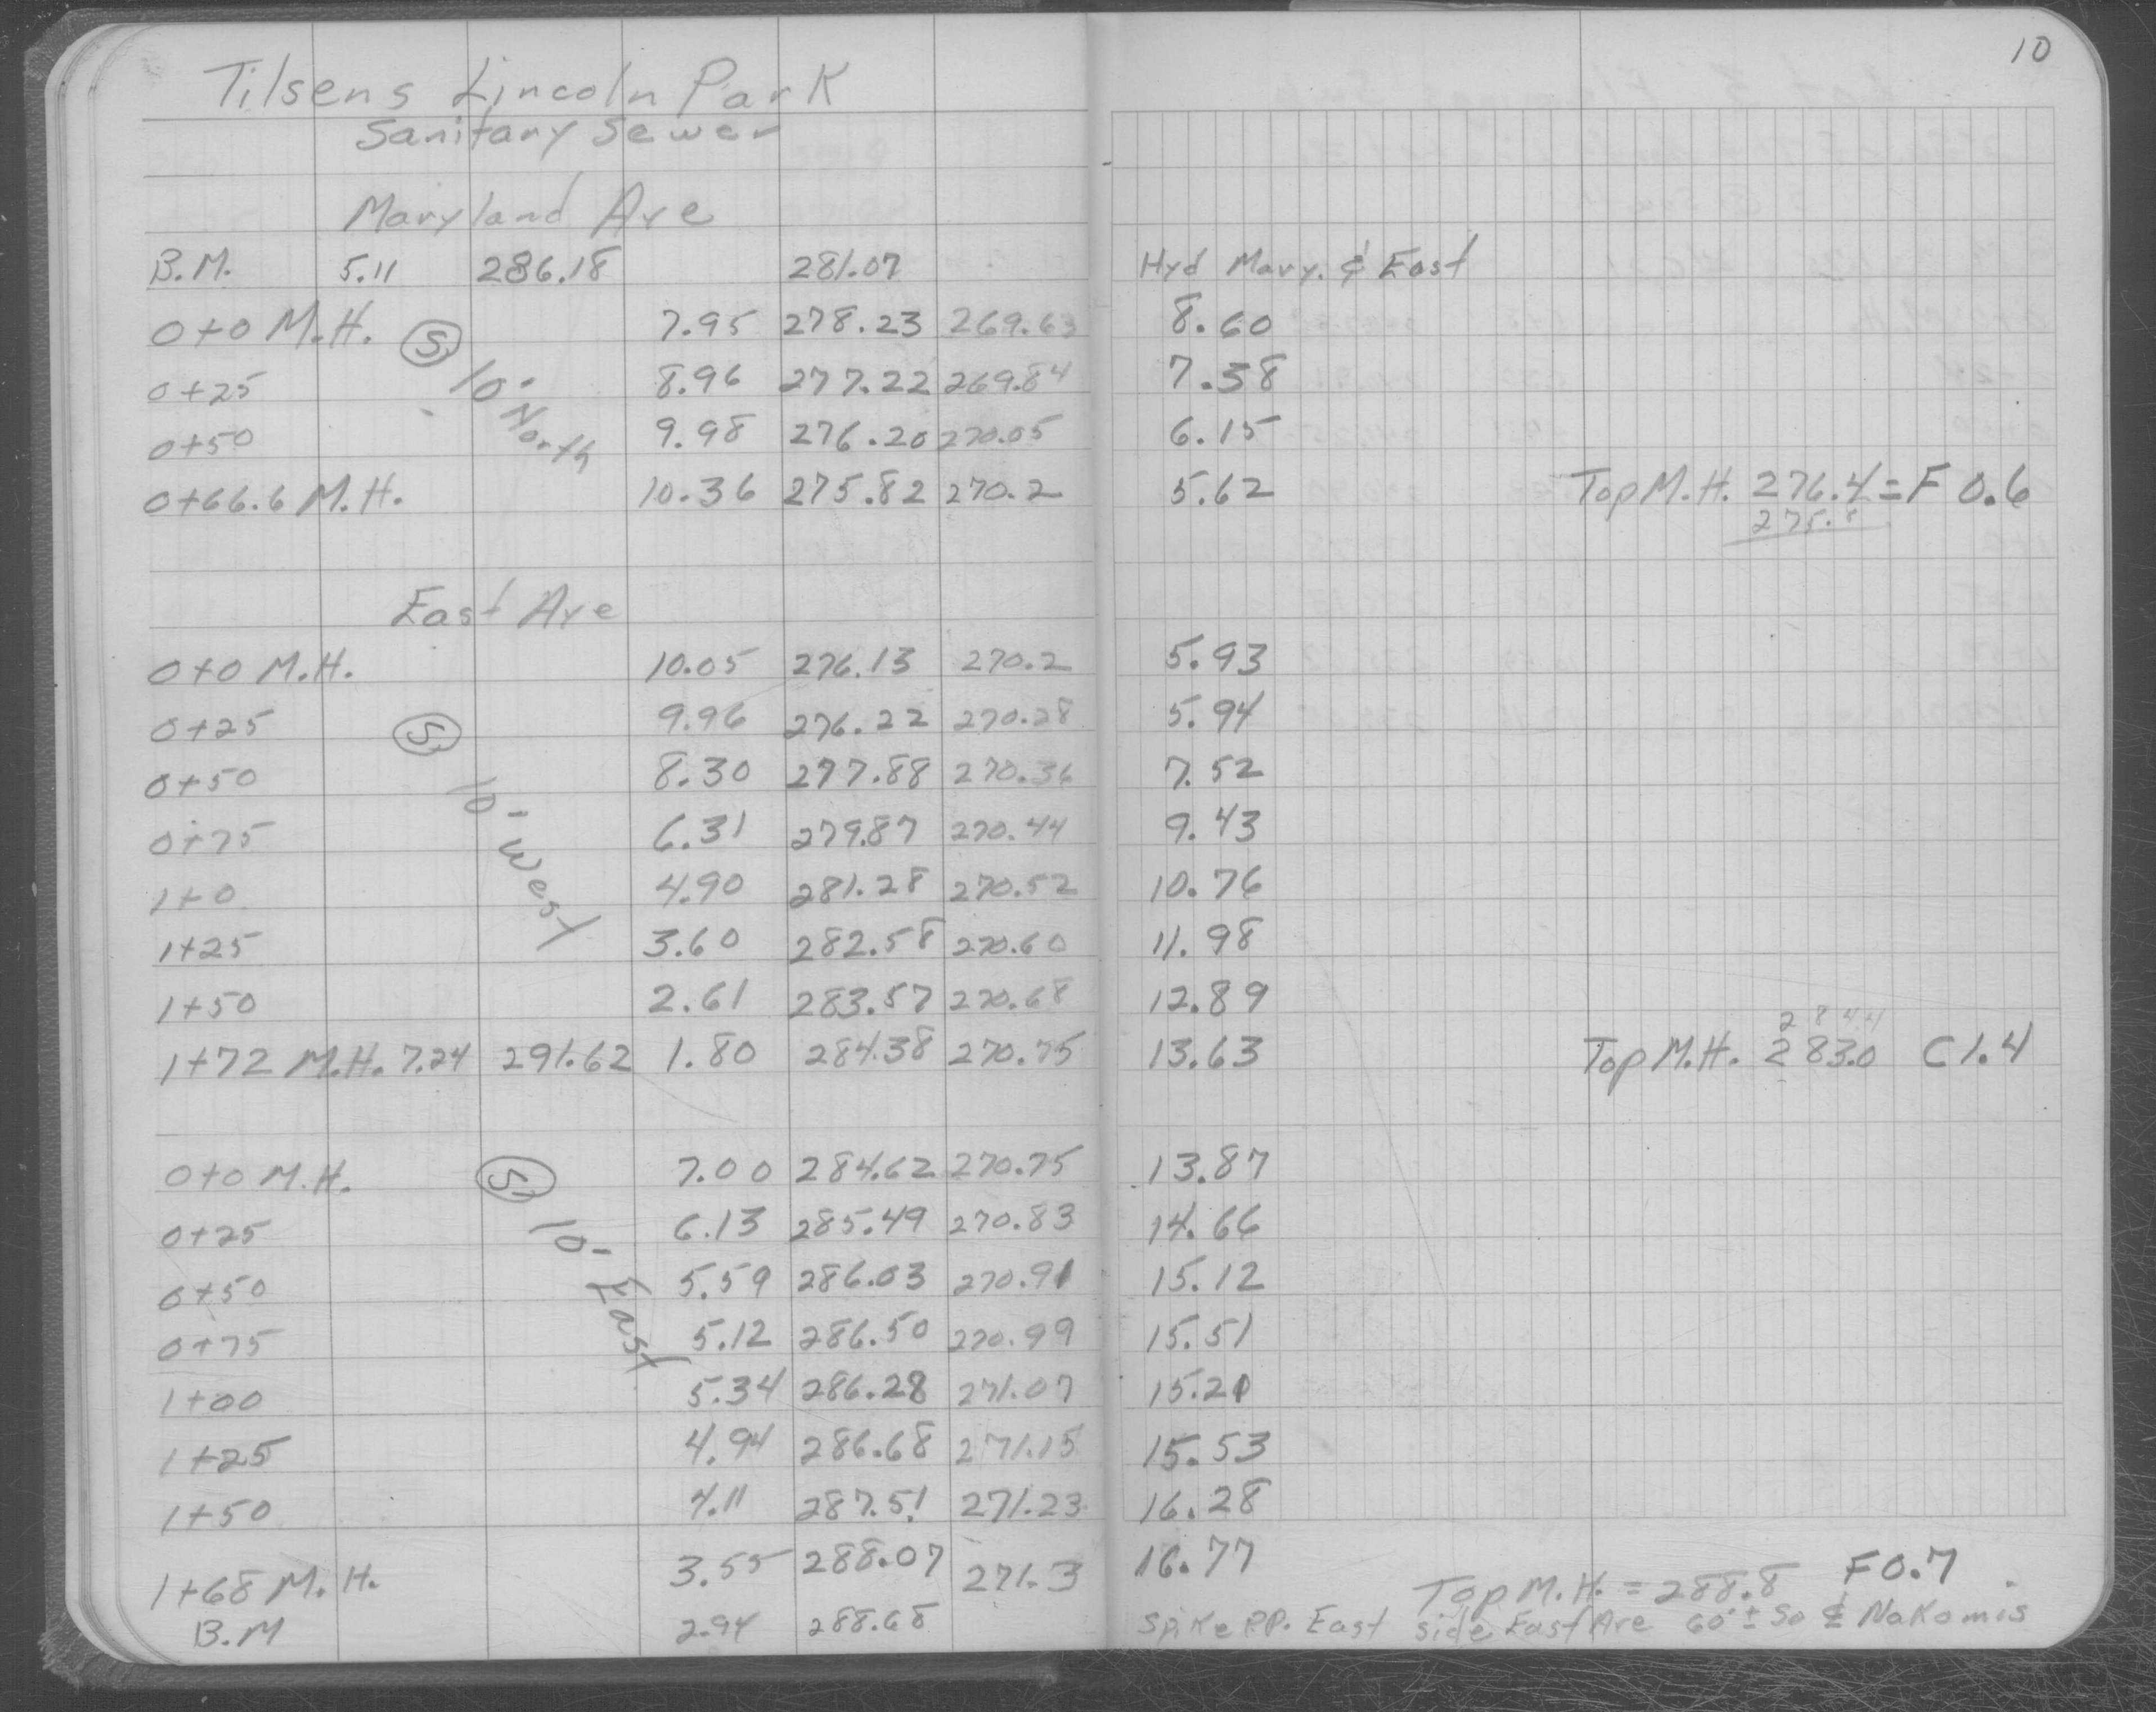 10
Tilsens Lincoln Park
Sanitary Sewer
Maryland Ave
B.M. 5.11 286.18 281.07 Hyd Mary. & East
0+0 M.H. 7.95 278.23 269.63 8.60
0+25 8.96 277.22 269.84 7.38
0+50 9.98 276.20 270.05 6.15
0+66.6 M.H. 10.36 275.82 270.2 5.62 Top M.H. 276.4 = F 0.6
275.8
S 10' North
East Ave
0+0 M.H. 10.05 276.13 270.2 5.93
0+25 9.96 276.22 270.28 5.94
0+50 8.30 277.88 270.36 7.52
0+75 6.31 279.87 270.44 9.43
1+0 4.90 281.28 270.52 10.76
1+25 3.60 282.58 270.60 11.98
1+50 2.61 283.57 270.68 12.89
284.4
1+72 M.H. 7.24 291.62 1.80 284.38 270.75 13.63 Top M.H. 283.0 C 1.4
S 10' West
0+0 M.H. 7.00 284.62 270.75 13.87
0+25 6.13 285.49 270.83 14.66
0+50 5.59 286.03 270.91 15.12
0+75 5.12 286.50 270.99 15.51
1+00 5.34 286.28 271.07 15.21
1+25 4.94 286.68 271.15 15.53
1+50 4.11 287.51 271.23 16.28
1+68 M.H. 3.55 288.07 271.3 16.77 Top M.H. = 288.8 F 0.7
S 10' East
B.M 2.94 288.68 Spike P.P. East side East Ave 60'± So ℄ Nakomis